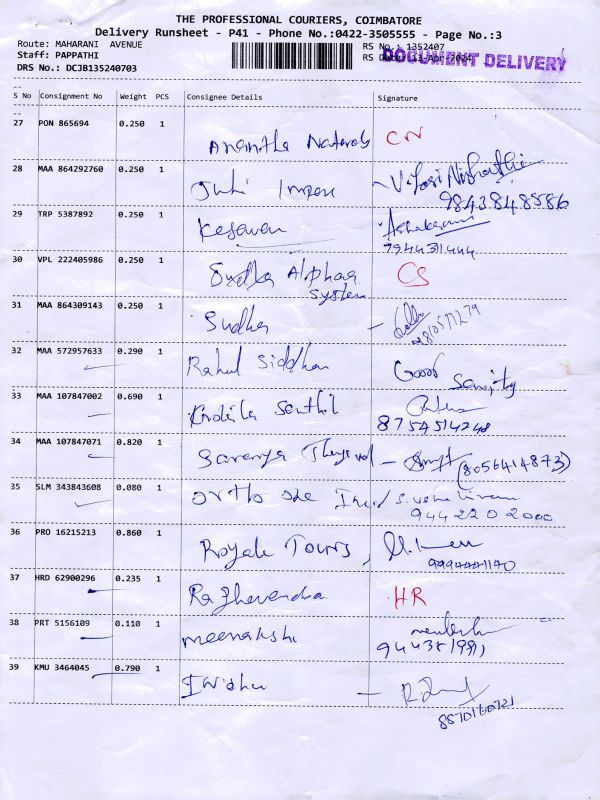 THE PROFESSIONAL COURIERS, COIMBATORE
Delivery Runsheet - P41 - Phone No.:0422-3505555 - Page No.:3
Route: MAHARANI AVENUE RS No.: 1352407
Staff: PAPPATHI RS Date: 13-Apr-2024 DOCUMENT DELIVERY
DRS No.: DCJB135240703
S No Consignment No Weight PCS Consignee Details Signature
27 PON 865694 0.250 1
Anantha Naturals CN
28 MAA 864292760 0.250 1
9843848586
29 TRP 5387892 0.250 1
Kesavan
7944311444
30 VPL 222405986 0.250 1
Sudha Alphaa CS
System
31 MAA 864309143 0.250 1
Sudha
32 MAA 572957633 0.290 1
Rahul Siddhan Good Samity
33 MAA 107847002 0.690 1
Senthil
8754514248
34 MAA 107847071 0.820 1
Saranya (8056414873)
35 SLM 343843608 0.080 1
Ortho one Inc./
944220 2000
36 PRO 16215213 0.860 1
Royale Tours,
37 HRD 62900296 0.235 1
Raghavendra HR
38 PRT 5156109 0.110 1
meenakshi
39 KMU 3464045 0.790 1
8870160721